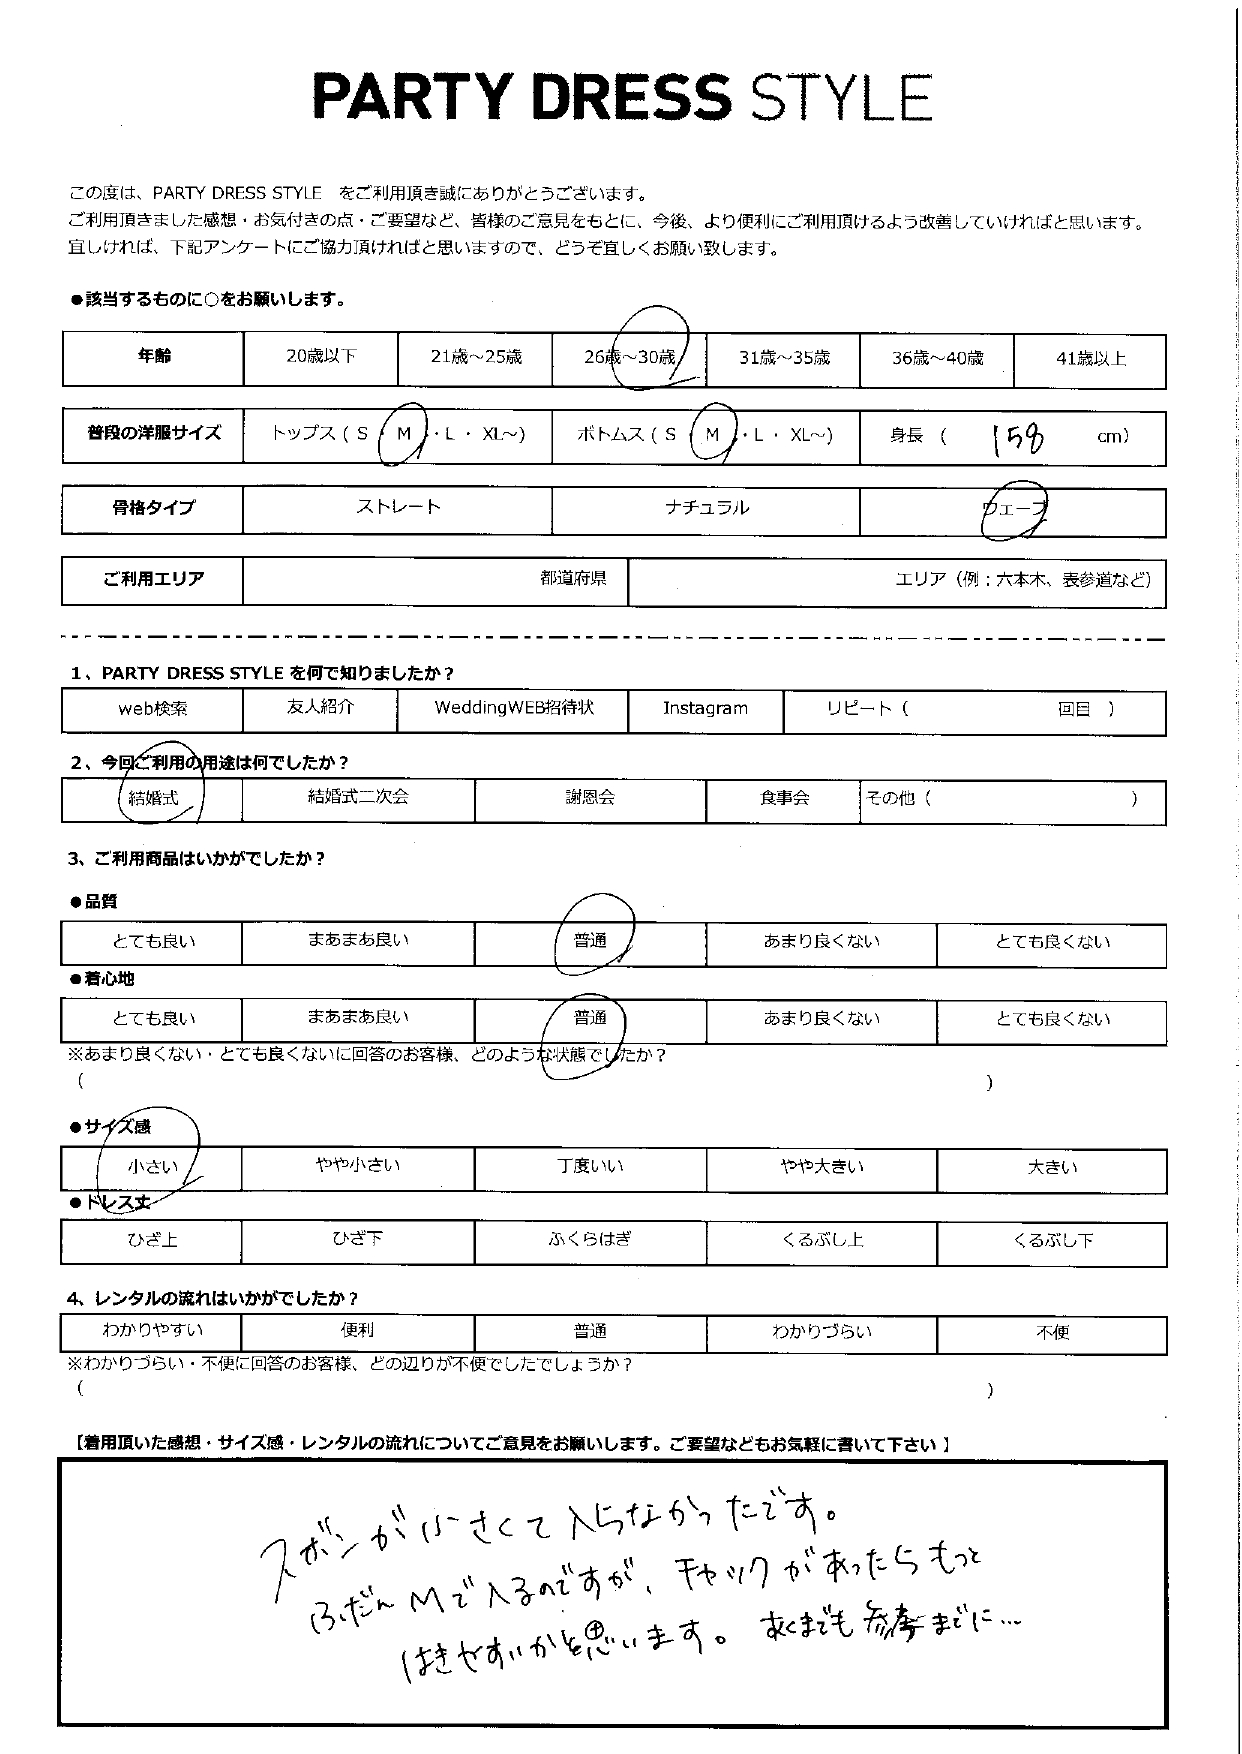 PARTY DRESS STYLE
この度は、PARTY DRESS STYLE をご利用頂き誠にありがとうございます。
ご利用頂きました感想・お気付きの点・ご要望など、皆様のご意見をもとに、今後、より便利にご利用頂けるよう改善していければと思います。
宜しければ、下記アンケートにご協力頂ければと思いますので、どうぞ宜しくお願い致します。
●該当するものに○をお願いします。
年齢 20歳以下 21歳～25歳 26歳～30歳 31歳～35歳 36歳～40歳 41歳以上
普段の洋服サイズ トップス（ S ・ M ・ L ・ XL～） ボトムス（ S ・ M ・ L ・ XL～） 身長 （ 158 cm）
骨格タイプ ストレート ナチュラル ウェーブ
ご利用エリア 都道府県 エリア（例：六本木、表参道など）
1、PARTY DRESS STYLE を何で知りましたか？
web検索 友人紹介 WeddingWEB招待状 Instagram リピート（ 回目 ）
2、今回ご利用の用途は何でしたか？
結婚式 結婚式二次会 謝恩会 食事会 その他（ ）
3、ご利用商品はいかがでしたか？
●品質
とても良い まあまあ良い 普通 あまり良くない とても良くない
●着心地
とても良い まあまあ良い 普通 あまり良くない とても良くない
※あまり良くない・とても良くないに回答のお客様、どのような状態でしたか？
（ ）
●サイズ感
小さい やや小さい 丁度いい やや大きい 大きい
●ドレス丈
ひざ上 ひざ下 ふくらはぎ くるぶし上 くるぶし下
4、レンタルの流れはいかがでしたか？
わかりやすい 便利 普通 わかりづらい 不便
※わかりづらい・不便に回答のお客様、どの辺りが不便でしたでしょうか？
（ ）
【着用頂いた感想・サイズ感・レンタルの流れについてご意見をお願いします。ご要望などもお気軽に書いて下さい 】
ズボンが小さくて入らなかったです。
ふだんMで入るのですが、チャックがあったらもっと
はきやすいかと思います。あくまでも参考までに…